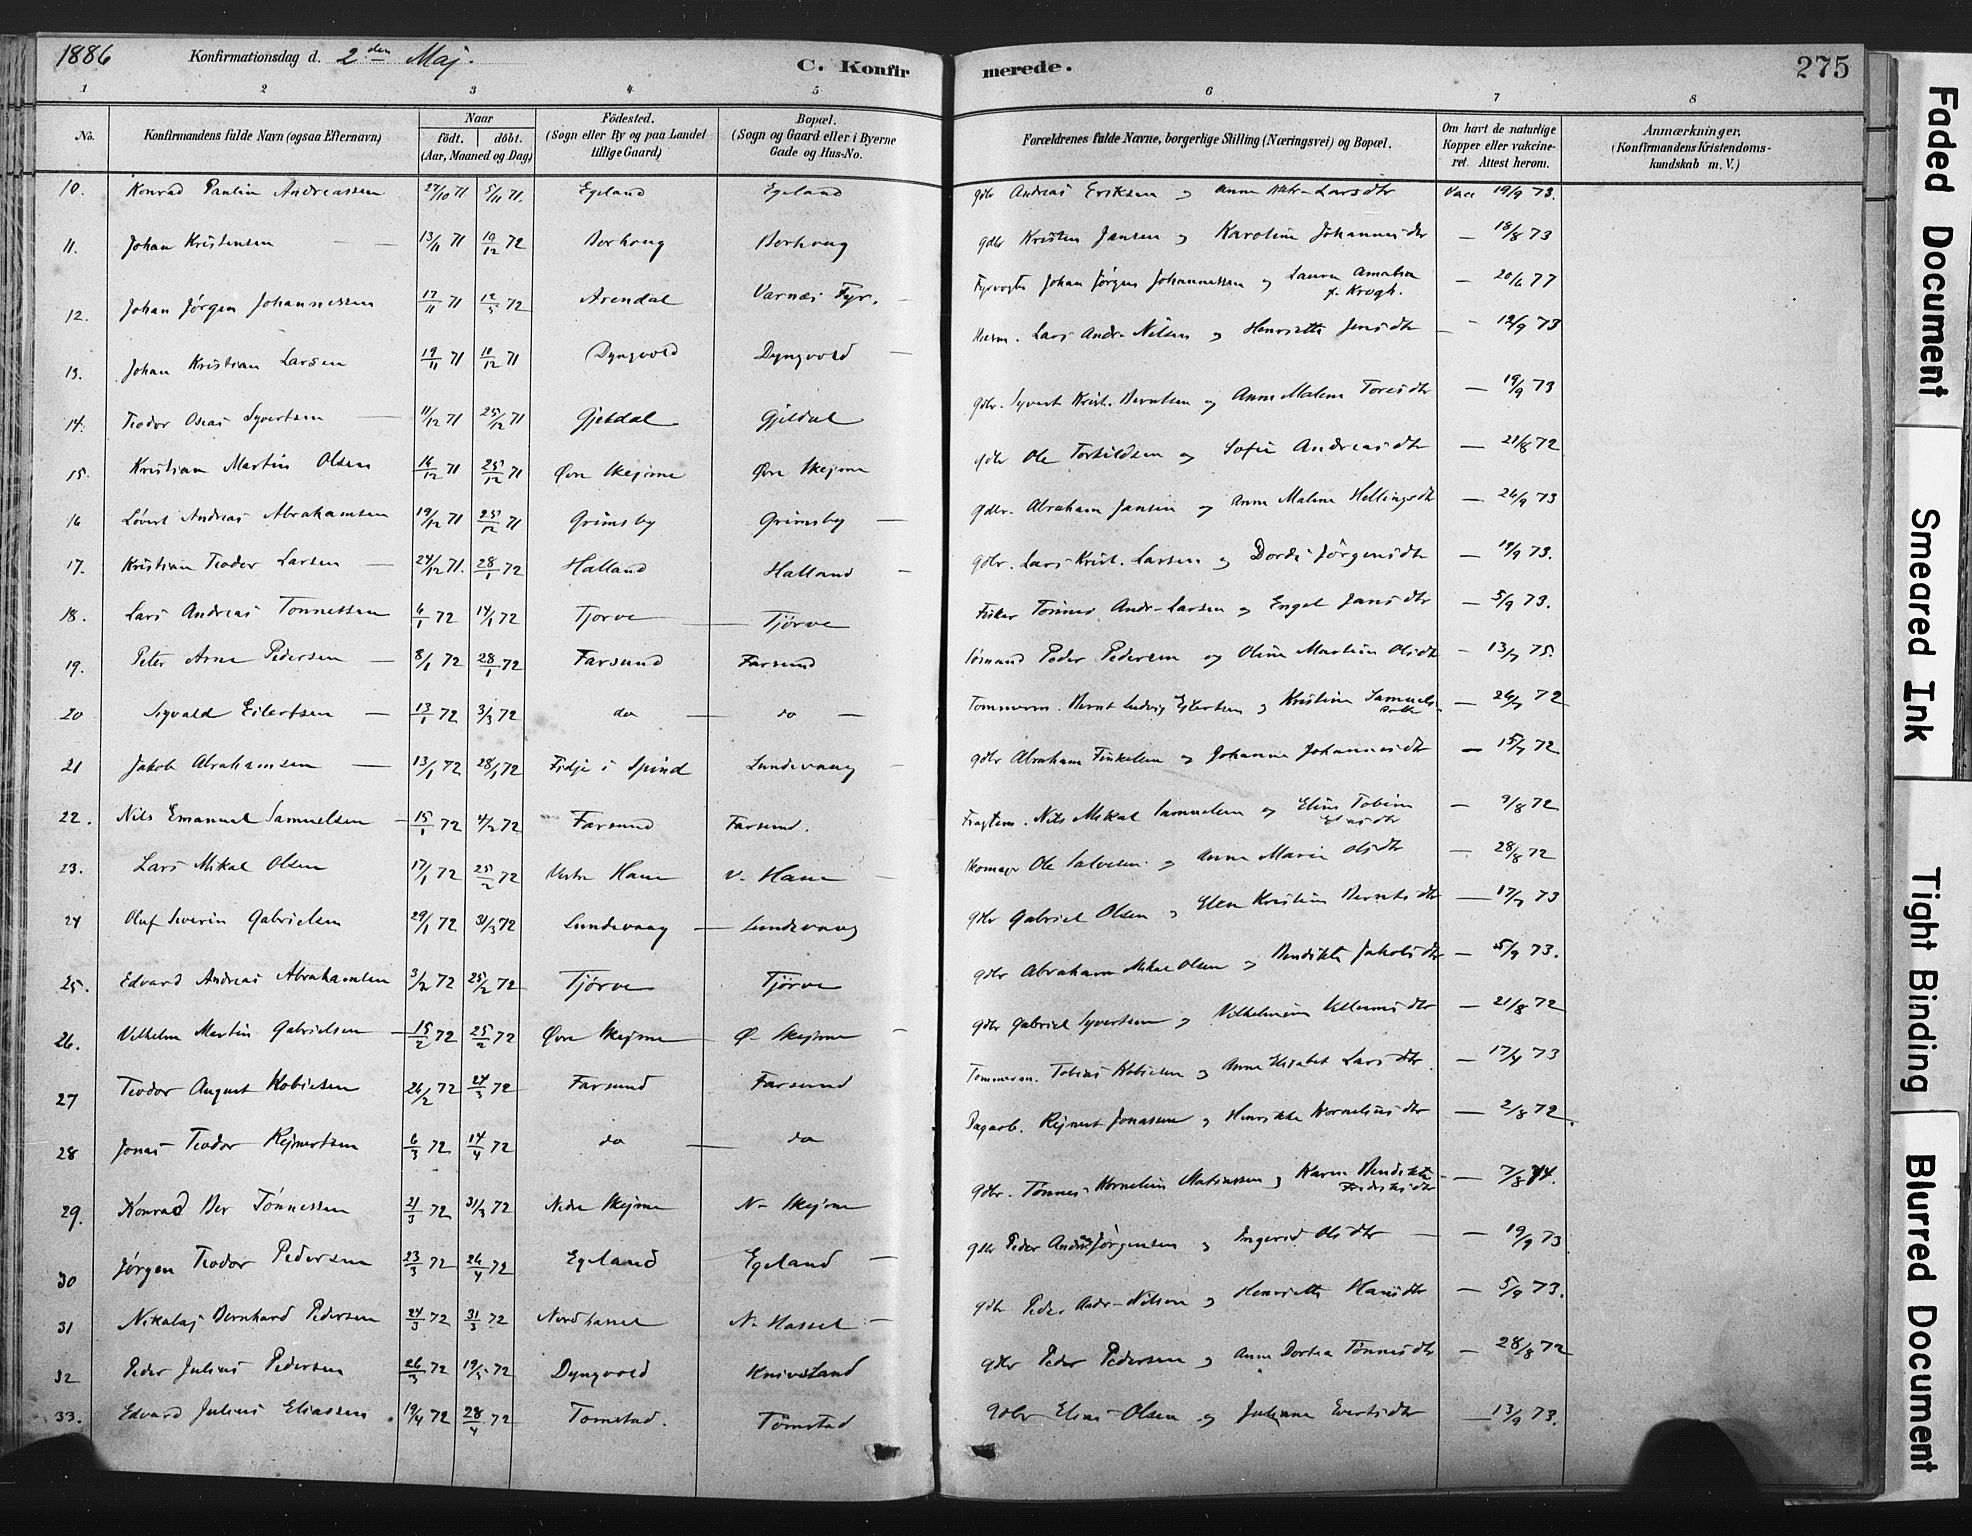 1886 Konfirmationsdag d. 2den Maj. C. Konfirmerede. 275
1 2 3 4 5 6 7 8
No. Konfirmandens fulde Navn (ogsaa Efternavn) Naar født. døbt. (Aar, Maaned og Dag) Fødested. (Sogn eller By og paa Landet tillige Gaard) Bopæl. (Sogn og Gaard eller i Byerne Gade og Hus-No. Forældrenes fulde Navne, borgerlige Stilling (Næringsvei) og Bopæl. Om havt de naturlige Kopper eller vaccineret. Attest herom. Anmærkninger, (Konfirmandens Kristendomskundskab m. V.)
10. Konrad Paulin Andreassen 27/10 71 5/11 71. Egeland Egeland gdbr Andreas Eriksen og Anne Larsdtr Vacc 19/9 73.
11. Johan Kristensen 13/11 71 Borhoug Borhoug gdbr Kristen Jansen og Karoline Johannesdtr — 18/8 73
12. Johan Jørgen Johannessen 17/11 71 12/5 72 Arendal Varnæs Fyr. Fyrvogter Johan Jørgen Johannessen og Laura Amalia f. Krogh. — 20/6 77
13. Johan Kristian Larsen 19/11 71 10/12 71 Dyngvold Dyngvold Lars Andr. Nilsen og Henriette Jensdtr — 12/9 73
14. Teodor Oseas Syvertsen 11/12 71 25/12 71 Gjeldal Gjeldal gdbr. Syvert Krist. Berntsen og Anne Malene Toresdtr — 19/9 73
15. Kristian Martin Olsen 14/12 71 25/12 71 Øvre Skejme Øvre Skejme gdbr Ole Torkildsen og Sofie Andreasdtr — 21/8 72
16 Løvert Andreas Abrahamsen 19/12 71 25/12 71 Grimsby Grimsby gdbr. Abraham Jansen og Anne Malene Hellingsdtr — 26/9 73
17. Kristian Teodor Larsen 24/12 71. 28/1 72 Halland Halland gdbr. Lars Krist. Larsen og Dorde Jørgensdtr — 19/9 73.
18. Lars Andreas Tønnessen 6/1 72 14/1 72 Tjørve Tjørve Fisker Tønnes Andr. Larsen og Engel Jansdtr — 5/9 73.
19. Peter Arne Pedersen 8/1 72 28/1 72 Farsund Farsund Sømand Peder Pedersen og Oline Martine Olsdtr — 13/7 75.
20 Sigvald Eilertsen 13/1 72 3/3 72 do do Tømmerm. Bernt Ludvig Eilertsen og Kristine Samuelsdatter — 26/7 72
21 Jakob Abrahamsen 13/1 72 28/1 72 Fidje i Spind Lundevaag gdbr Abraham Finkelsen og Johanne Johannesdtr — 15/7 72
22. Nils Emanuel Samuelsen 15/1 72 4/2 72 Farsund Farsund. Nils Mikal Samuelsen og Eline Tobine — 9/8 72
23. Lars Mikal Olsen 17/1 72 25/2 72 Vestre Hauge V. Hauge Skomager Ole Salvesen og Anne Marie Olsdtr — 28/8 72
24 Oluf Severin Gabrielsen 29/1 72 31/3 72 Lundevaag Lundevaag gdbr Gabriel Olsen og Elen Kristine Berntsdtr — 17/7 73
25. Edvard Andreas Abrahamsen 3/2 72 25/2 72 Tjørve Tjørve gdbr Abraham Mikal Olsen og Bendikte Jakobsdtr — 5/9 73.
26. Vilhelm Martin Gabrielsen 15/2 72 25/2 72 Øvre Skejme Ø. Skejme gdbr Gabriel Syvertsen og Vilhelmine — 21/8 72
27 Teodor August Kobielsen 26/2 72 24/3 72 Farsund Farsund Tømmerm. Tobias Kobielsen og Anne Elisabet Larsdtr. — 17/4 73
28 Jonas Teodor Rejnertsen 6/3 72 14/4 72 do do Dagarb. Rejnert Jonassen og Henrikke Kornelinsdtr — 2/8 72.
29. Konrad Ber Tønnessen 21/3 72 31/3 72 Nedre Skejme N. Skejme gdbr. Tønnes Kornelius Matiassen og Karen Bendikte Fredriksdtr — 7/8 74.
30 Jørgen Teodor Pedersen 23/3 72 26/4 72 Egeland Egeland gdbr Peder Andreas Jørgensen og Ingerid Olsdtr — 19/9 73
31 Nikolaj Bernhard Pedersen 24/3 72 31/3 72 Nordhassel N. Hassel gdbr Peder Andr. Nilsen og Henriette Hansdtr — 5/9 73.
32 Peder Julius Pedersen 26/3 72 19/5 72 Dyngvold Knivsland gdbr Peder Pedersen og Anne Dortea Tønnesdtr — 28/8 72
33. Edvard Julius Eliassen 19/4 72 28/4 72 Tomstad. Tomstad gdbr Elias Olsen og Juliane Evertsdtr — 13/9 73.
Faded Document
Smeared Ink
Tight Binding
Blurred Document